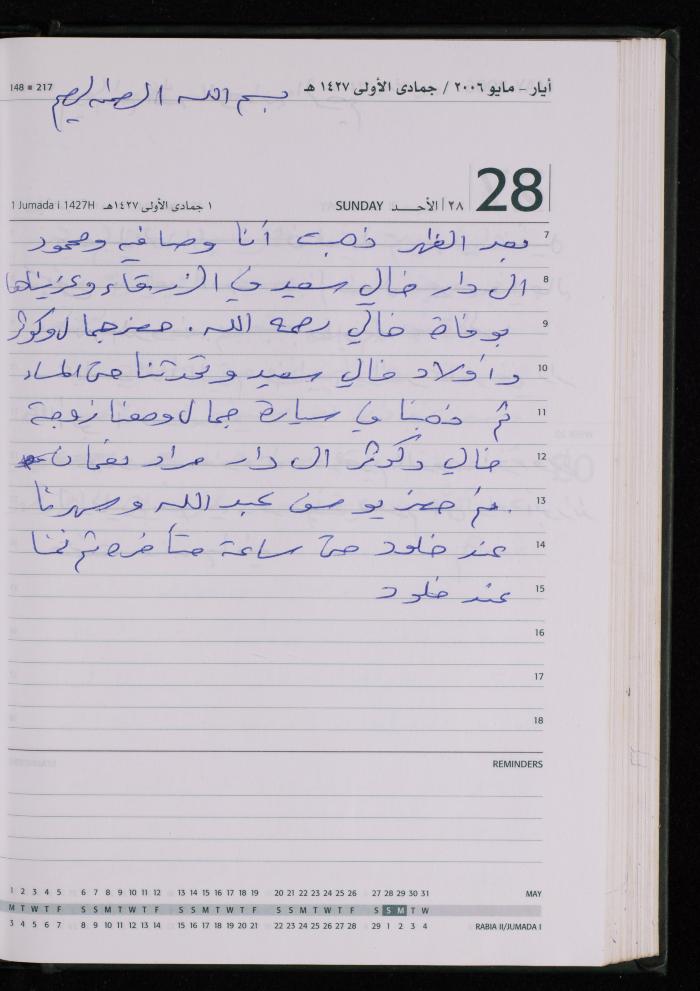 148 ■ 217 بسم الله الرحمن الرحيم أيار - مايو ٢٠٠٦ / جمادى الأولى ١٤٢٧ هـ
28
1 Jumada i 1427H ١ جمادى الأولى ١٤٢٧هـ SUNDAY ٢٨ | الأحـــد
7 بعد الظهر ذهبت أنا وصافيه ومحمود
8 الى دار خالي سعيد في الزرقاء وعزيناها
9 بوفاة خالي رحمه الله . حضر جمال وكوثر
10 وأولاد خالي سعيد وتحدثنا حتى المساء
11 ثم ذهبنا في سيارة جمال ومعنا زوجة
12 خالي وكوثر الى دار مراد
13 . ثم حضر يوسف عبد الله وسهرنا
14 عند خلود حتى ساعة متأخره ثم نمنا
15 عند خلود
16
17
18
REMINDERS
1 2 3 4 5 6 7 8 9 10 11 12 13 14 15 16 17 18 19 20 21 22 23 24 25 26 27 28 29 30 31 MAY
M T W T F S S M T W T F S S M T W T F S S M T W T F S S M T W
3 4 5 6 7 8 9 10 11 12 13 14 15 16 17 18 19 20 21 22 23 24 25 26 27 28 29 1 2 3 4 RABIA II/JUMADA I